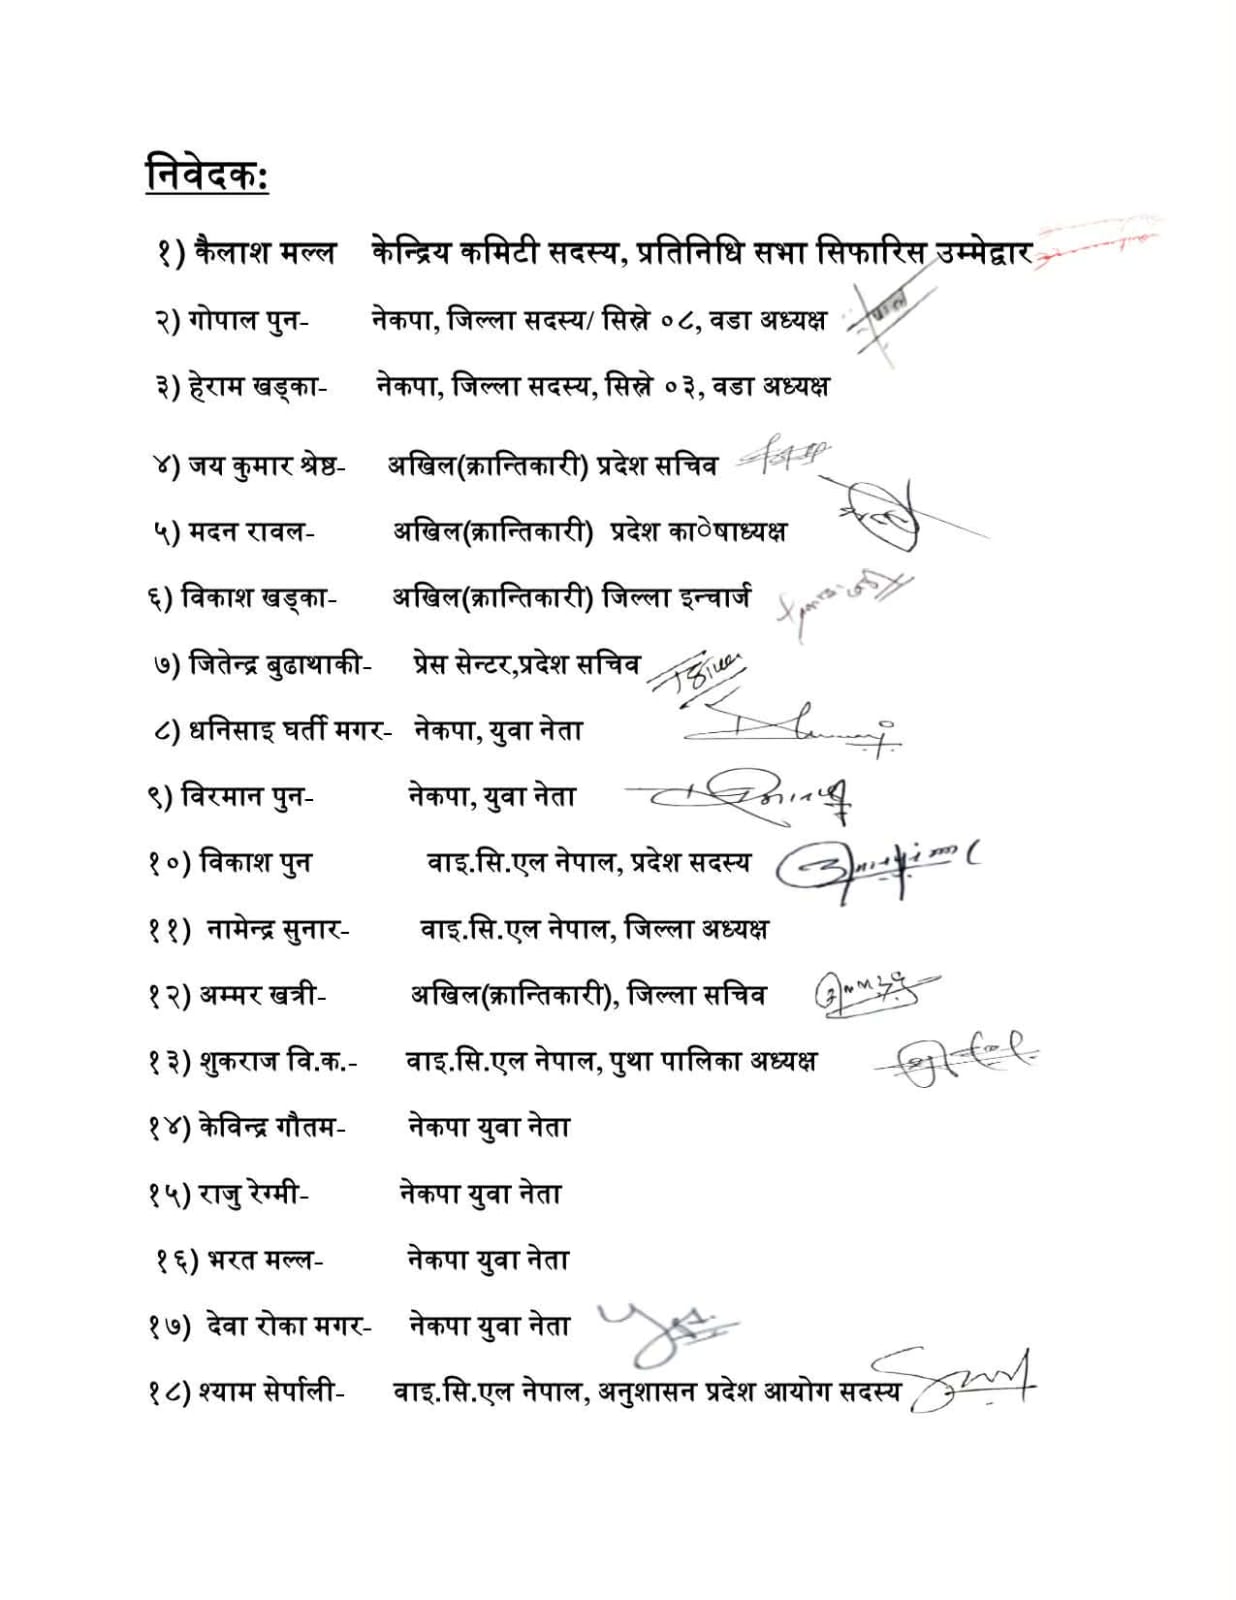 निवेदक:
१) कैलाश मल्ल केन्द्रिय कमिटी सदस्य, प्रतिनिधि सभा सिफारिस उम्मेद्वार
२) गोपाल पुन- नेकपा, जिल्ला सदस्य/ सिस्ने ०८, वडा अध्यक्ष
३) हेराम खड्का- नेकपा, जिल्ला सदस्य, सिस्ने ०३, वडा अध्यक्ष
४) जय कुमार श्रेष्ठ- अखिल(क्रान्तिकारी) प्रदेश सचिव
५) मदन रावल- अखिल(क्रान्तिकारी) प्रदेश काेषाध्यक्ष
६) विकाश खड्का- अखिल(क्रान्तिकारी) जिल्ला इन्चार्ज
७) जितेन्द्र बुढाथाकी- प्रेस सेन्टर,प्रदेश सचिव
८) धनिसाइ घर्ती मगर- नेकपा, युवा नेता
९) विरमान पुन- नेकपा, युवा नेता
१०) विकाश पुन वाइ.सि.एल नेपाल, प्रदेश सदस्य
११) नामेन्द्र सुनार- वाइ.सि.एल नेपाल, जिल्ला अध्यक्ष
१२) अम्मर खत्री- अखिल(क्रान्तिकारी), जिल्ला सचिव
१३) शुकराज वि.क.- वाइ.सि.एल नेपाल, पुथा पालिका अध्यक्ष
१४) केविन्द्र गौतम- नेकपा युवा नेता
१५) राजु रेग्मी- नेकपा युवा नेता
१६) भरत मल्ल- नेकपा युवा नेता
१७) देवा रोका मगर- नेकपा युवा नेता
१८) श्याम सेर्पाली- वाइ.सि.एल नेपाल, अनुशासन प्रदेश आयोग सदस्य